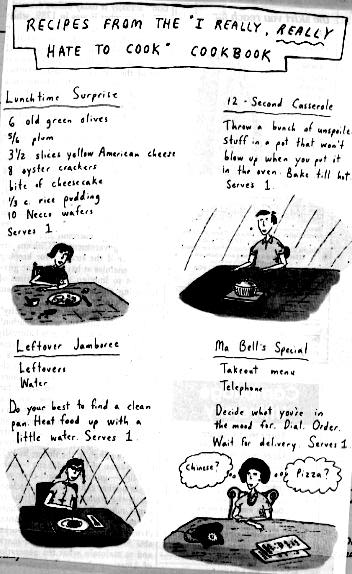 RECIPES FROM THE "I REALLY, REALLY
HATE TO COOK" COOKBOOK
Lunchtime Surprise
6 old green olives
5/6 plum
3 1/2 slices yellow American cheese
8 oyster crackers
bite of cheesecake
1/3 c. rice pudding
10 Necco wafers
Serves 1.
12-Second Casserole
Throw a bunch of unspoiled
stuff in a pot that won't
blow up when you put it
in the oven. Bake till hot.
Serves 1.
Leftover Jamboree
Leftovers
Water
Do your best to find a clean
pan. Heat food up with a
little water. Serves 1.
Ma Bell's Special
Takeout menu
Telephone
Decide what you're in
the mood for. Dial. Order.
Wait for delivery. Serves 1.
Chinese?
Pizza?